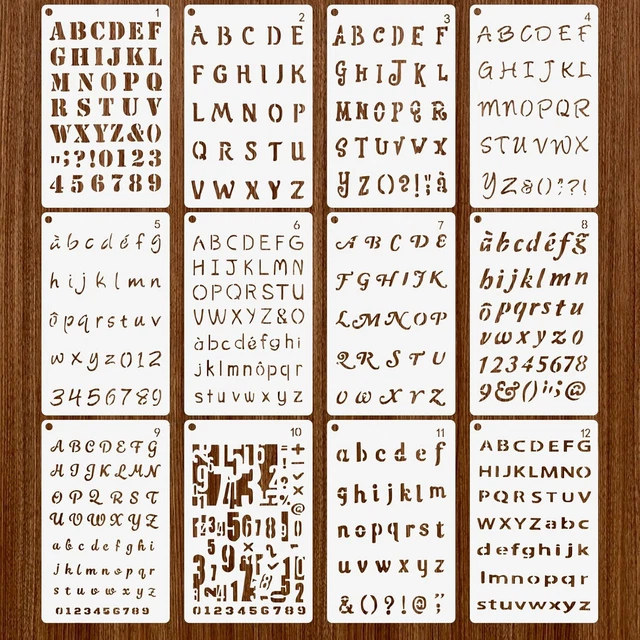 1
ABCDEF
GHIJKL
MNOPQ
RSTUV
WXYZ&O
";?!0123
456789
2
ABCDE
FGHIJK
LMNOP
QRSTU
VWXYZ
3
ABCDEF
GHIJKL
MNOPQR
STUVWX
YZ()?!";à
4
ABCDEF
GHIJKL
MNOPQR
STUVWX
YZ&()"?!
5
àbcdéfg
hijklmn
ôpqrstuv
wxyz012
3456789
6
ABCDEFG
HIJKLMN
OPQRSTU
VWXYZ&O
àbcdefghi
jklmnôpqr
stuvwxyz
7
ABCDE
FGHIJK
LMNOP
QRSTU
VWXYZ
8
àbcdéfg
hijklmn
ôpqrstu
vwxyz0
12345678
9&()";@
9
ABCDEFG
HIJKLMN
OPQRST
UVWXYZ
abcdefghi
jklmnopqr
stuvwxyz
0123456789
10
0123456789
11
abcdef
ghijklm
nopqrst
uvwxyz
&()?!@";
12
ABCDEFG
HIJKLMNO
PQRSTUV
WXYZabc
defghijk
lmnopqr
stuvwxyz